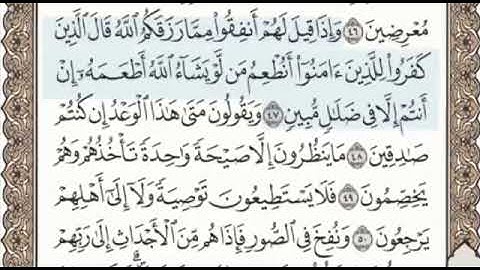 مُعْرِضِينَ ٤٦ وَإِذَا قِيلَ لَهُمْ أَنفِقُوا۟ مِمَّا رَزَقَكُمُ ٱللَّهُ قَالَ ٱلَّذِينَ
كَفَرُوا۟ لِلَّذِينَ ءَامَنُوٓا۟ أَنُطْعِمُ مَن لَّوْ يَشَآءُ ٱللَّهُ أَطْعَمَهُۥٓ إِنْ
أَنتُمْ إِلَّا فِى ضَلَٰلٍ مُّبِينٍ ٤٧ وَيَقُولُونَ مَتَىٰ هَٰذَا ٱلْوَعْدُ إِن كُنتُمْ
صَٰدِقِينَ ٤٨ مَا يَنظُرُونَ إِلَّا صَيْحَةً وَٰحِدَةً تَأْخُذُهُمْ وَهُمْ
يَخِصِّمُونَ ٤٩ فَلَا يَسْتَطِيعُونَ تَوْصِيَةً وَلَآ إِلَىٰٓ أَهْلِهِمْ
يَرْجِعُونَ ٥٠ وَنُفِخَ فِى ٱلصُّورِ فَإِذَا هُم مِّنَ ٱلْأَجْدَاثِ إِلَىٰ رَبِّهِمْ